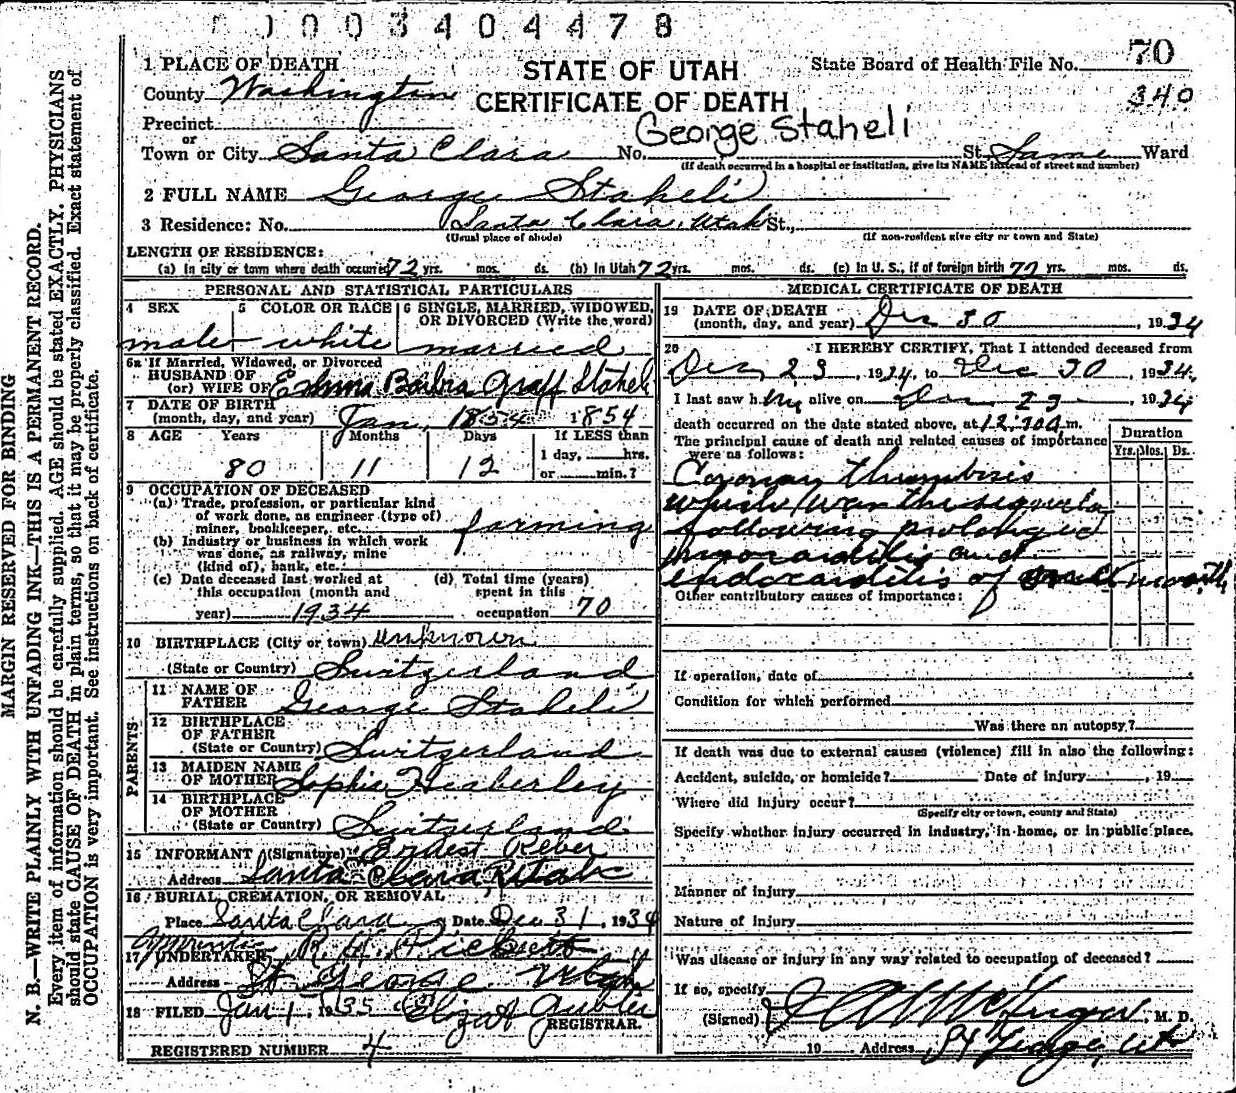 0003404478
70
340
STATE OF UTAH
CERTIFICATE OF DEATH
State Board of Health File No.
1 PLACE OF DEATH
County Washington
Precinct
or
Town or City Santa Clara No. St. Same Ward
George Staheli
(If death occurred in a hospital or institution, give its NAME instead of street and number)
2 FULL NAME George Staheli
3 Residence: No. Santa Clara, Utah St.,
(Usual place of abode) (If non-resident give city or town and State)
LENGTH OF RESIDENCE:
(a) In city or town where death occurred 72 yrs. mos. ds. (b) In Utah 72 yrs. mos. ds. (c) In U. S., if of foreign birth 72 yrs. mos. ds.
PERSONAL AND STATISTICAL PARTICULARS
4 SEX
male
5 COLOR OR RACE
white
6 SINGLE, MARRIED, WIDOWED, OR DIVORCED (Write the word)
married
6a If Married, Widowed, or Divorced
HUSBAND OF
(or) WIFE OF Barbra Graff Staheli
7 DATE OF BIRTH
(month, day, and year) Jan, 18 1854
8 AGE Years Months Days If LESS than
1 day, hrs.
80 11 12 or min.?
9 OCCUPATION OF DECEASED
(a) Trade, profession, or particular kind
of work done, as engineer (type of)
miner, bookkeeper, etc. farming
(b) Industry or business in which work
was done, as railway, mine
(kind of), bank, etc.
(c) Date deceased last worked at
this occupation (month and
year) 1934
(d) Total time (years)
spent in this
occupation 70
10 BIRTHPLACE (City or town) unknown
(State or Country) Switzerland
PARENTS
11 NAME OF
FATHER George Staheli
12 BIRTHPLACE
OF FATHER
(State or Country) Switzerland
13 MAIDEN NAME
OF MOTHER Sophia Heaberley
14 BIRTHPLACE
OF MOTHER
(State or Country) Switzerland
15 INFORMANT (Signature) Ernest Reber
Address Santa Clara, Utah
16 BURIAL, CREMATION, OR REMOVAL
Place Santa Clara Date Dec 31, 1934
17 UNDERTAKER R. H. Pickett
Address St. George Utah
18 FILED Jan 1 1935 Eliz A Gubler
REGISTRAR.
REGISTERED NUMBER 4
MEDICAL CERTIFICATE OF DEATH
19 DATE OF DEATH
(month, day, and year) Dec 30, 1934
20 I HEREBY CERTIFY, That I attended deceased from
Dec 23, 1934, to Dec 30, 1934.
I last saw him alive on Dec 29, 1934
death occurred on the date stated above, at m.
The principal cause of death and related causes of importance
were as follows:
Duration
Yrs. Mos. Ds.
Coronary thrombosis
which was the sequela
following prolonged
myocarditis and
endocarditis of months
Other contributory causes of importance:
If operation, date of
Condition for which performed
Was there an autopsy?
If death was due to external causes (violence) fill in also the following:
Accident, suicide, or homicide? Date of injury , 19
Where did injury occur?
(Specify city or town, county and State)
Specify whether injury occurred in industry, in home, or in public place.
Manner of injury
Nature of injury
Was disease or injury in any way related to occupation of deceased?
If so, specify
(Signed) M. D.
19 Address St George, Ut
MARGIN RESERVED FOR BINDING
N. B.—WRITE PLAINLY WITH UNFADING INK—THIS IS A PERMANENT RECORD.
Every item of information should be carefully supplied. AGE should be stated EXACTLY. PHYSICIANS
should state CAUSE OF DEATH in plain terms, so that it may be properly classified. Exact statement of
OCCUPATION is very important. See instructions on back of certificate.